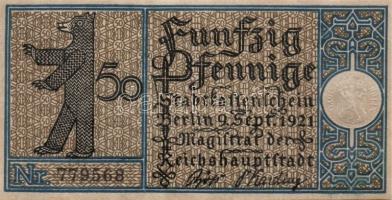 Funfzig
50 Pfennige
Stadtkassenschein
Berlin 9. Sept. 1921
Magistrat der
Reichshauptstadt
Nr. 779568